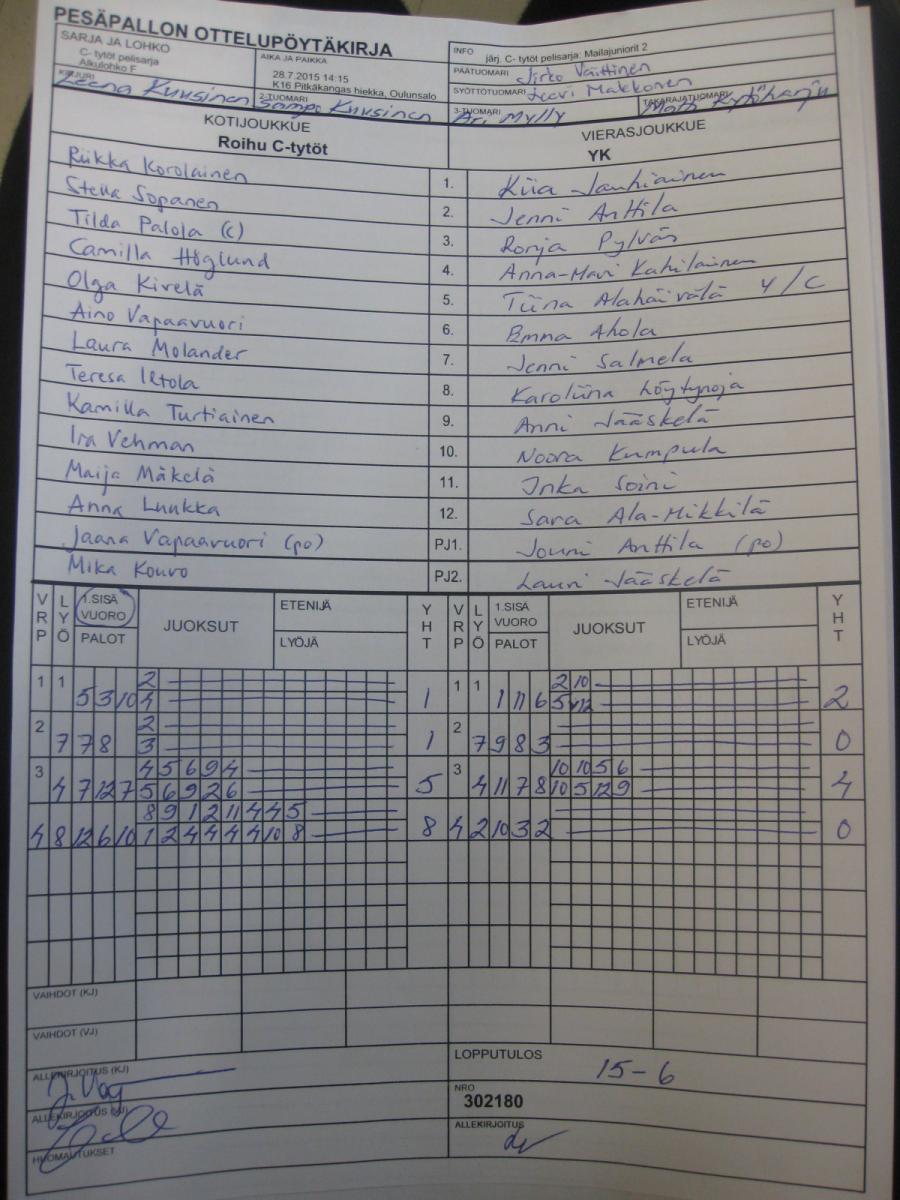 PESÄPALLON OTTELUPÖYTÄKIRJA
SARJA JA LOHKO
C- tytöt pelisarja
Alkulohko F
AIKA JA PAIKKA
28.7.2015 14:15
K16 Pitkäkangas hiekka, Oulunsalo
INFO järj. C- tytöt pelisarja: Mailajuniorit 2
PÄÄTUOMARI Jirko Väittinen
SYÖTTÖTUOMARI Leevi Makkonen
KIRJURI Leena Kuusinen
2-TUOMARI Sampo Kuusinen
3-TUOMARI Ari Mylly
TAKARAJATUOMARI Matti Kytöharju
KOTIJOUKKUE
Roihu C-tytöt
VIERASJOUKKUE
YK
Riikka Korolainen 1. Kiia Jauhiainen
Stella Sopanen 2. Jenni Anttila
Tilda Palola (c) 3. Ronja Pylväs
Camilla Höglund 4. Anna-Mari Kahilainen
Olga Kivelä 5. Tiina Alahäivälä Y/C
Aino Vapaavuori 6. Emna Ahola
Laura Molander 7. Jenni Salmela
Teresa Iltola 8. Karoliina Löytynoja
Kamilla Turtiainen 9. Anni Jääskelä
Ira Vehman 10. Noora Kumpula
Maija Mäkelä 11. Inka Soini
Anna Luukka 12. Sara Ala-Mikkilä
Jaana Vapaavuori (po) PJ1. Jouni Anttila (po)
Mika Kouvo PJ2. Lauri Jääskelä
VRP LYÖ 1.SISÄ VUORO PALOT JUOKSUT ETENIJÄ LYÖJÄ YHT VRP LYÖ 1.SISÄ VUORO PALOT JUOKSUT ETENIJÄ LYÖJÄ YHT
2 2 10
1 1 5 3 10 4 1 1 1 1 11 6 5 12 2
2
2 7 7 8 3 1 2 7 9 8 3 0
4 5 6 9 4 10 10 5 6
3 4 7 12 7 5 6 9 2 6 5 3 4 11 7 8 10 5 12 9 4
8 9 1 2 11 4 4 5
4 8 12 6 10 1 2 4 4 4 4 10 8 8 4 2 10 3 2 0
VAIHDOT (KJ)
VAIHDOT (VJ)
ALLEKIRJOITUS (KJ)
LOPPUTULOS 15-6
ALLEKIRJOITUS (VJ)
NRO
302180
HUOMAUTUKSET
ALLEKIRJOITUS